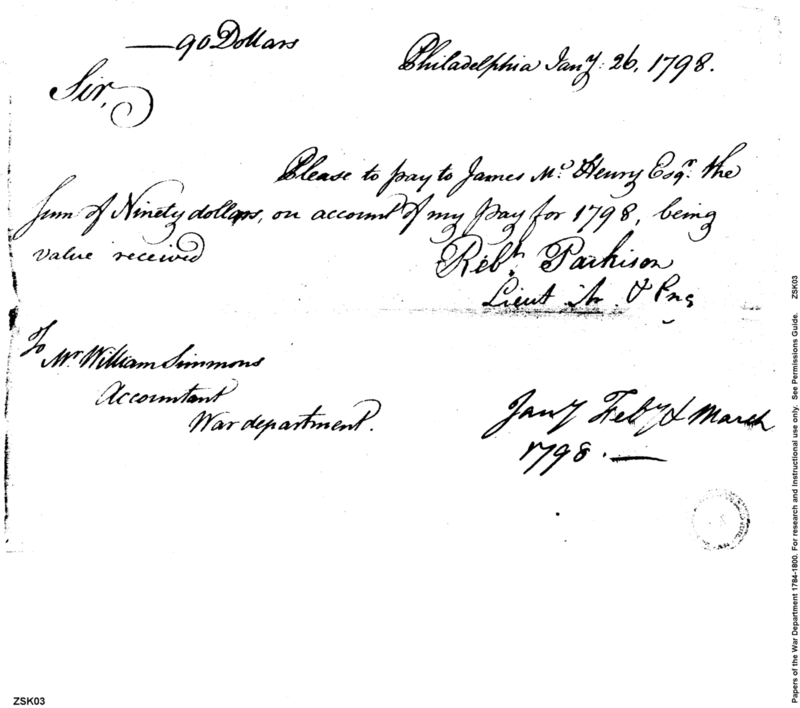 —90 Dollars
Philadelphia Jany: 26, 1798.
Sir,
Please to pay to James Mc. Henry Esqr. the
sum of Ninety dollars, on account of my pay for 1798, being
value received
Robt. Parkison
Lieut & Eng
To
Mr. William Simmons
Accountant
War department.
Jany Feby & March
1798. —
Papers of the War Department 1784-1800. For research and Instructional use only. See Permissions Guide. ZSK03
ZSK03